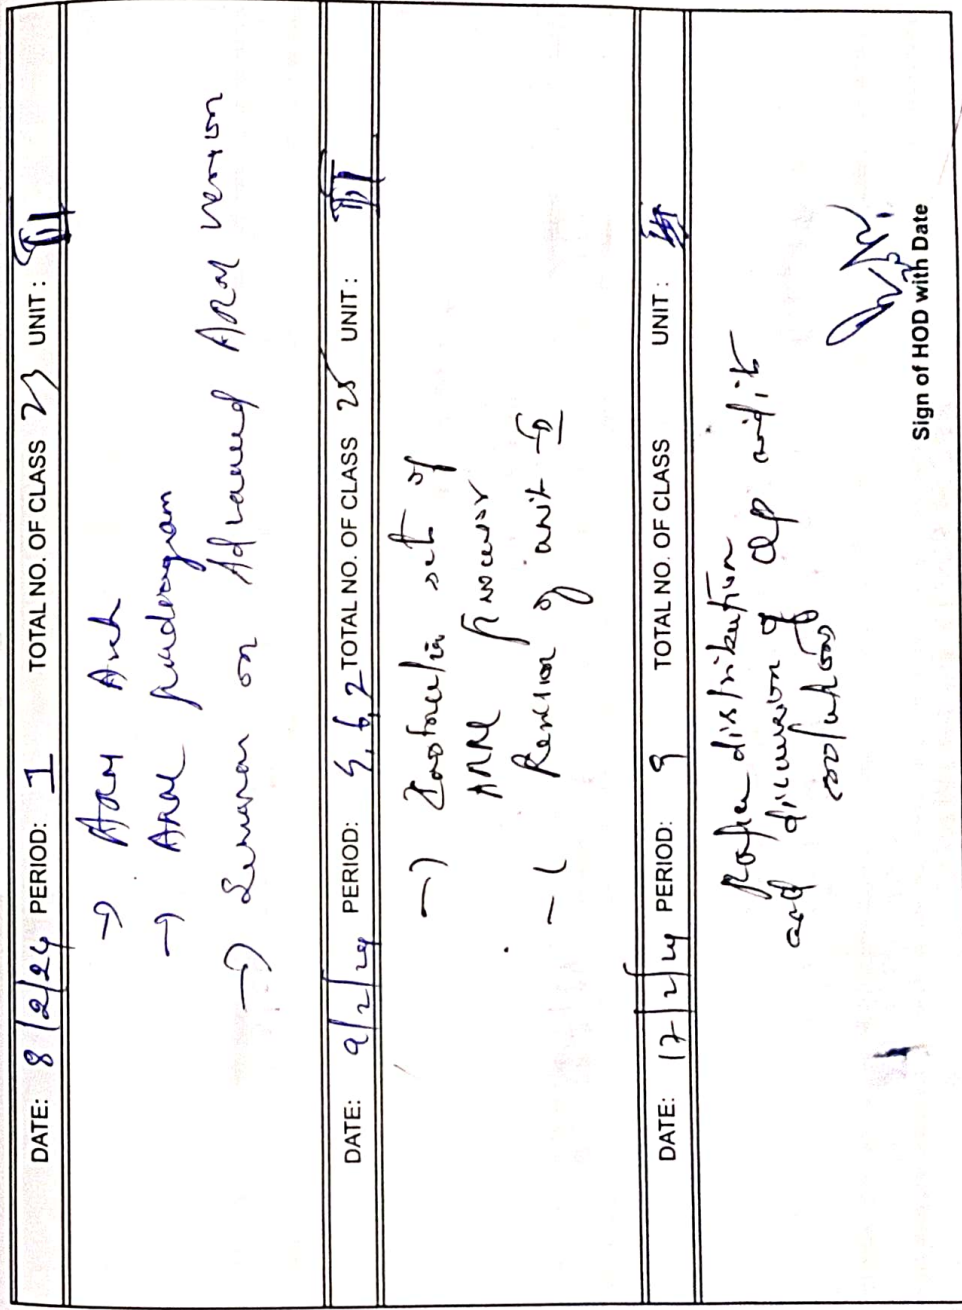 DATE: 8/2/24 PERIOD: 1 TOTAL NO. OF CLASS 23 UNIT: III
→ ARM Arch
→ ARM
→ on Advanced ARM version
DATE: 9/2/24 PERIOD: 5, 6, 2 TOTAL NO. OF CLASS 25 UNIT: III
→ set of
ARM processor
Revision of unit
DATE: 17/2/24 PERIOD: 9 TOTAL NO. OF CLASS UNIT:
Paper distribution
and discussion of QP and it
solutions
Sign of HOD with Date